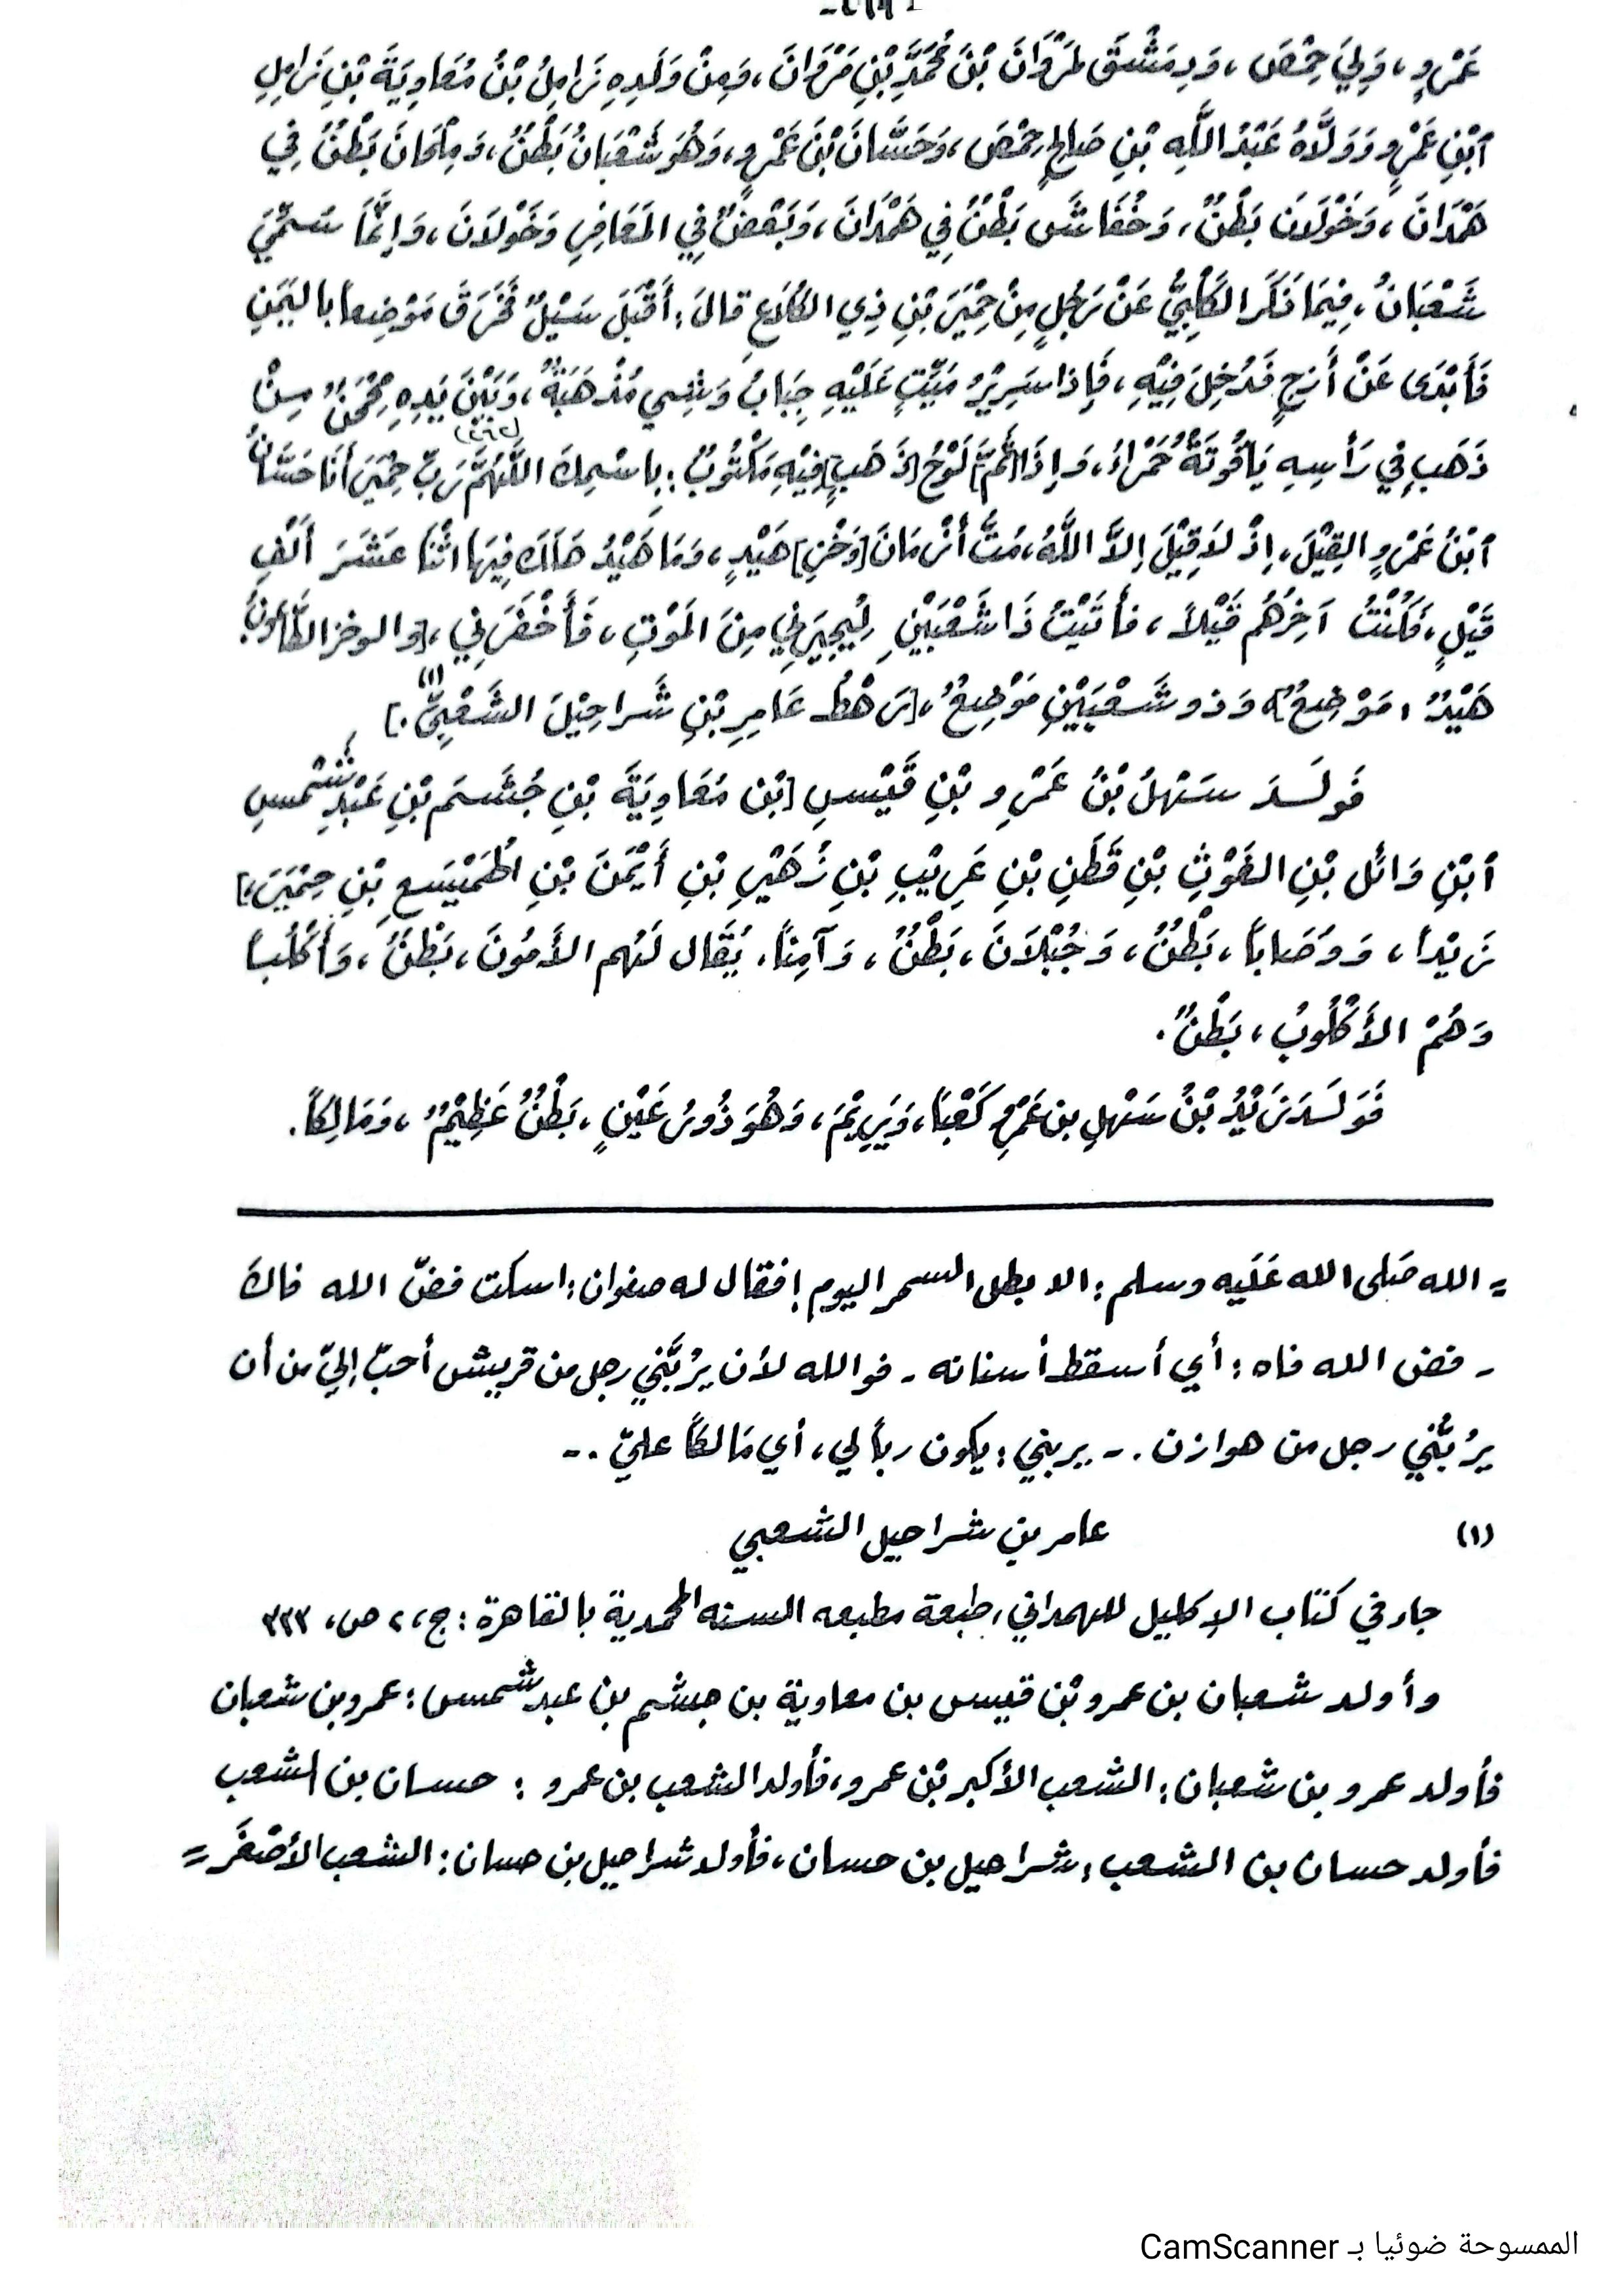 عَمْرٍو، وَلِيَ حِمْصَ، وَدِمَشْقَ لِمَرْوَانَ بْنِ مُحَمَّدِ بْنِ مَرْوَانَ، وَمِنْ وَلَدِهِ زَامِلُ بْنُ مُعَاوِيَةَ بْنِ زَامِلِ
ٱبْنِ عَمْرٍو وَوَلَّاهُ عَبْدُ اللَّهِ بْنِ صَالِحٍ حِمْصَ، وَحَسَّانَ بْنَ عَمْرٍو، وَهُوَ شَعْبَانُ بَطْنٌ، وَمِلْحَانَ بَطْنٌ فِي
هَمْدَانَ، وَخَوْلَانَ بَطْنٌ، وَخُفَاشَ بَطْنٌ فِي هَمْدَانَ، وَبَعْضٌ فِي المَعَافِرِ وَخَوْلَانَ، وَإِنَّمَا سُمِّيَ
شَعْبَانُ، فِيمَا ذَكَرَ الكَلْبِيُّ عَنْ رَجُلٍ مِنْ حِمْيَرَ بْنِ ذِي الكَلَاعِ قَالَ: أَقْبَلَ سَيْلٌ فَخَرَقَ مَوْضِعاً بِاليَمَنِ
فَأَبْدَى عَنْ أَزَجٍ فَدُخِلَ فِيْهِ، فَإِذا سَرِيْرُ مَيِّتٍ عَلَيْهِ جِبَابُ وَشْيٍ مُذْهَبَةٌ، وَبَيْنَ يَدِهِ مِحْجَنٌ مِنْ
ذَهَبٍ فِي رَأْسِهِ يَاقُوتَةٌ حَمْرَاءُ، وَإِذَا [ثَمَّ] لَوْحُ [ذَهَبٍ] فِيْهِ مَكْتُوبٌ: بِاسْمِكَ اللَّهُمَّ رَبِّ حِمْيَرَ أَنَا حَسَّانُ
(٢٦٢)
ٱبْنُ عَمْرٍو القِيْلَ، إِذْ لاَ قِيْلَ إِلاَّ اللَّهُ، مُتُّ أَزْمَانَ [وَخْزِ] هَيْدٍ، وَمَا هَيْدُ هَلَكَ فِيهَا اثْنَا عَشَرَ أَلْفِ
قَيْلٍ، فَكُنْتُ آخِرَهُم قَيْلاً، فَأَتَيْتُ ذَا شَعْبَيْنِ لِيُجِيْرَنِي مِنَ المَوْتِ، فَأَخْفَرَنِي، [والوخز الطَّاعُونُ،
هَيْدٌ، مَوْضِعٌ] وَذو شَعْبَيْنِ مَوْضِعٌ، [رَهْطُ عَامِرِ بْنِ شَراحِيْلَ الشَّعْبِيِّ.] (١)
فَوَلَدَ سَهْلُ بْنُ عَمْرِو بْنِ قَيْسِ [بْنِ مُعَاوِيَةَ بْنِ جُشَمَ بْنِ عَبْدِ شَمْسِ
ٱبْنِ وَائَل بْنِ الغَوْثِ بْنِ قَطَنِ بْنِ عَرِيْبِ بْنِ زُهَيْرِ بْنِ أَيْمَنَ بْنِ الهُمَيْسَعِ بْنِ حِمْيَرَ،]
زَيْداً، وَوُصَاباً، بَطْنٌ، وَجُبْلَانَ، بَطْنٌ، وَآمِناً. يُقَال لَهُم الأَمُونَ، بَطْنٌ، وَأَكْلُباً
وَهُمْ الأُكْلُوبُ، بَطْنٌ.
فَوَلَدَ زَيْدُ بْنُ سَهْلِ بن عَمْرٍو كَعْبَا، وَيَرِيْمَ، وَهُوَ ذُو رُعَيْنٍ، بَطْنٌ عَظِيْمٌ، وَمَالِكاً.
= الله صَلى الله عَلَيه وسلم: الا بطل السحر اليوم! فقال له صفوان: اسكت فضّ الله فاك
- فض الله فاه: أي أسقط أسنانه - فوالله لأن يَرُبَّنِي رجل من قريش أحبّ إليّ من أن
يرُبَّنِي رجل من هوازن. - يربني: يكون رباً لي، أي مَالكاً عليّ. -
(١) عامر بن شراحيل الشعبي
جاء في كتاب الإكليل للهمداني، طبعة مطبعه السنه المحمدية بالقاهرة: ج، ٢ ص، ٣٢٣
وأولد شعبان بن عمرو بْن قيس بن معاوية بن جشم بن عبد شمس: عمرو بن شعبان
فأولد عمرو بن شعبان: الشعب الأكبر بْن عمرو، فأولد الشعب بن عمرو: حسان بن الشعب
فأولد حسان بن الشعب: شراحيل بن حسان، فأولد شراحيل بن حسان: الشعب الأصْغَر =
الممسوحة ضوئيا بـ CamScanner